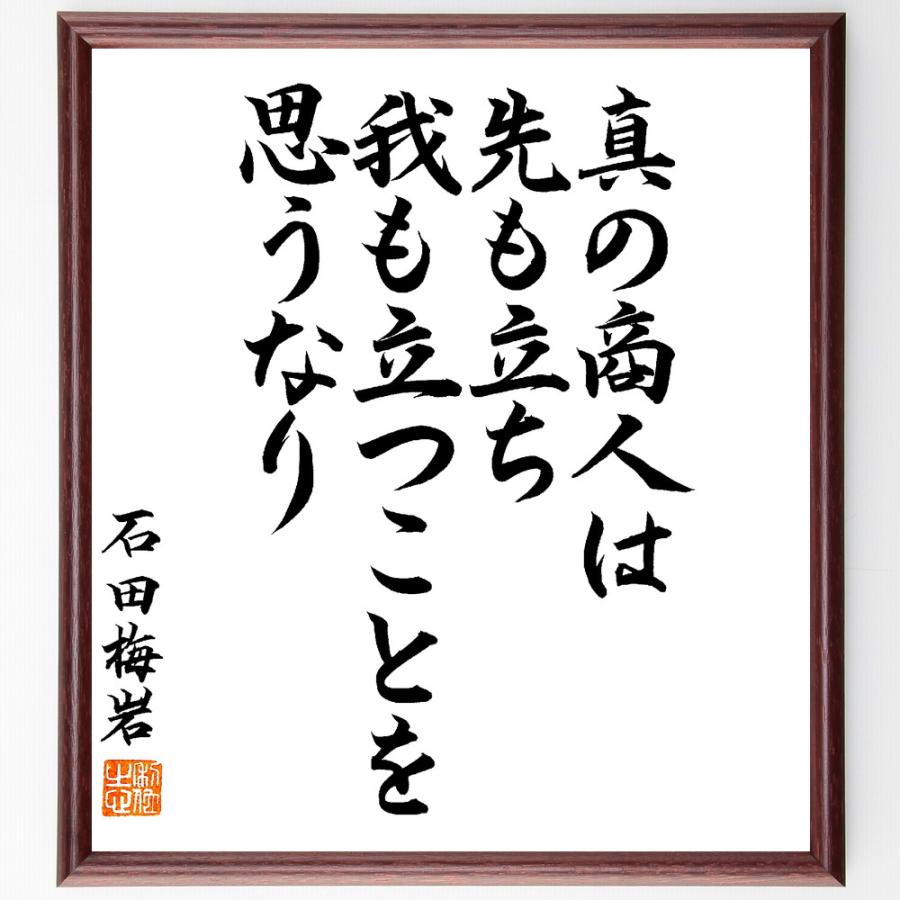 真の商人は
先も立ち
我も立つことを
思うなり
石田梅岩